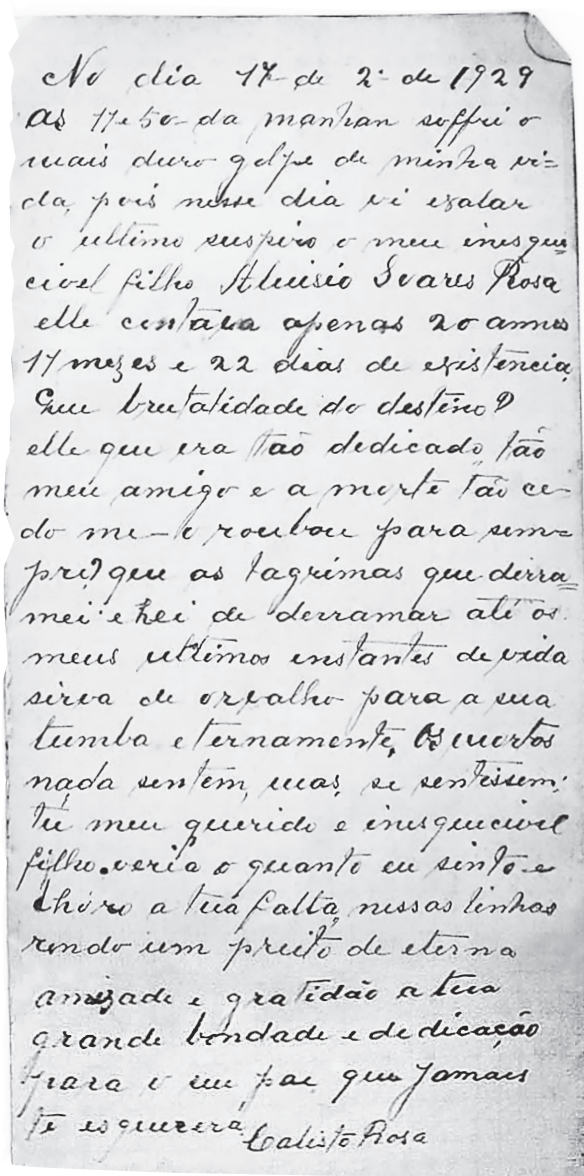 No dia 17 de 2 de 1929
as 11 e 50 da manhan soffri o
mais duro golpe de minha vi=
da, pois nesse dia vi exalar
o ultimo suspiro o meu inesque=
civel filho Aluisio Soares Rosa
elle contava apenas 20 annos
11 mezes e 22 dias de existencia,
Que brutalidade do destino?
elle que era tão dedicado, tão
meu amigo e a morte tão ce-
do me-o roubou para sem=
pre? que as lagrimas que derra=
mei e hei de derramar até os
meus ultimos instantes de vida
sirva de orvalho para a sua
tumba eternamente, Os mortos
nada sentem, mas, se sentissem;
tú meu querido e inesquecivel
filho veria o quanto eu sinto e
chóro a tua falta, nessas linhas
rendo um preito de eterna
amizade e gratidão a tua
grande bondade e dedicação
para o seu pae que jamais
te esquecerá
Calisto Rosa